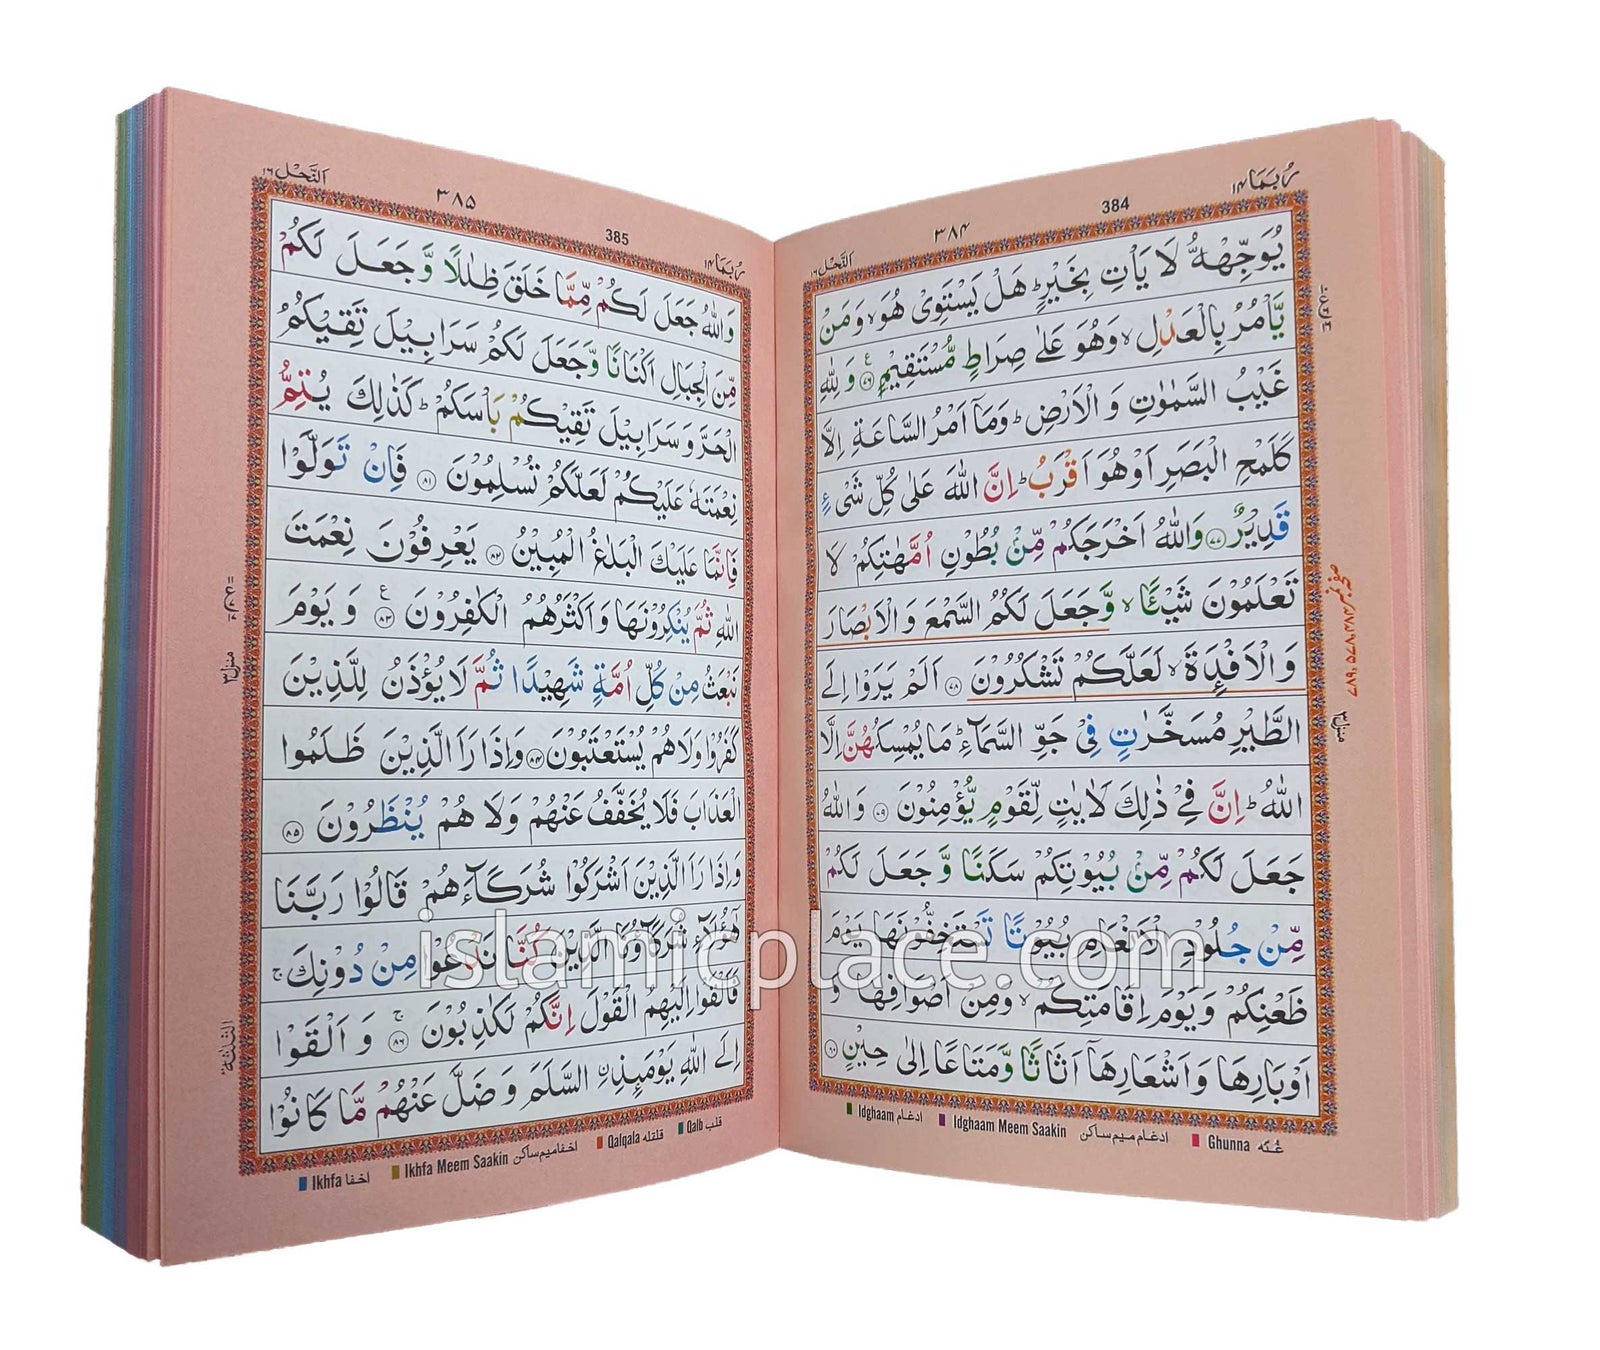 رُبَمَا ١٤
384
٣٨٤
اَلنَّحْل ١٦
يُوَجِّهْهُّ لَا يَاْتِ بِخَيْرٍ ؕ هَلْ يَسْتَوِىْ هُوَ ۙ وَ مَنْ
يَّاْمُرُ بِالْعَدْلِ ۙ وَهُوَ عَلٰى صِرَاطٍ مُّسْتَقِيْمٍ ﴿٧٦﴾ وَ لِلّٰهِ
غَيْبُ السَّمٰوٰتِ وَ الْاَرْضِ ؕ وَمَاۤ اَمْرُ السَّاعَةِ اِلَّا
كَلَمْحِ الْبَصَرِ اَوْ هُوَ اَقْرَبُ ؕ اِنَّ اللّٰهَ عَلٰى كُلِّ شَىْءٍ
قَدِيْرٌ ﴿٧٧﴾ وَاللّٰهُ اَخْرَجَكُمْ مِّنْۢ بُطُوْنِ اُمَّهٰتِكُمْ لَا
تَعْلَمُوْنَ شَيْـًٔا ۙ وَّ جَعَلَ لَكُمُ السَّمْعَ وَ الْاَبْصَارَ
وَ الْاَفْـِٕدَةَ ۙ لَعَلَّكُمْ تَشْكُرُوْنَ ﴿٧٨﴾ اَلَمْ يَرَوْا اِلَى
الطَّيْرِ مُسَخَّرٰتٍ فِىْ جَوِّ السَّمَآءِ ؕ مَا يُمْسِكُهُنَّ اِلَّا
اللّٰهُ ؕ اِنَّ فِىْ ذٰلِكَ لَاٰيٰتٍ لِّقَوْمٍ يُّؤْمِنُوْنَ ﴿٧٩﴾ وَ اللّٰهُ
جَعَلَ لَكُمْ مِّنْۢ بُيُوْتِكُمْ سَكَنًا وَّ جَعَلَ لَكُمْ
مِّنْ جُلُوْدِ الْاَنْعَامِ بُيُوْتًا تَسْتَخِفُّوْنَهَا يَوْمَ
ظَعْنِكُمْ وَ يَوْمَ اِقَامَتِكُمْ ۙ وَمِنْ اَصْوَافِهَا وَ
اَوْبَارِهَا وَ اَشْعَارِهَاۤ اَثَاثًا وَّمَتَاعًا اِلٰى حِيْنٍ ﴿٨٠﴾
منزل ٣
Idghaam ادغام
Idghaam Meem Saakin ادغام میم ساکن
Ghunna غُنّه
اَلنَّحْل ١٦
٣٨٥
385
رُبَمَا ١٤
وَ اللّٰهُ جَعَلَ لَكُمْ مِّمَّا خَلَقَ ظِلٰلًا وَّ جَعَلَ لَكُمْ
مِّنَ الْجِبَالِ اَكْنَانًا وَّ جَعَلَ لَكُمْ سَرَابِيْلَ تَقِيْكُمُ
الْحَرَّ وَ سَرَابِيْلَ تَقِيْكُمْ بَاْسَكُمْ ؕ كَذٰلِكَ يُتِمُّ
نِعْمَتَهٗ عَلَيْكُمْ لَعَلَّكُمْ تُسْلِمُوْنَ ﴿٨١﴾ فَاِنْ تَوَلَّوْا
فَاِنَّمَا عَلَيْكَ الْبَلٰغُ الْمُبِيْنُ ﴿٨٢﴾ يَعْرِفُوْنَ نِعْمَتَ
اللّٰهِ ثُمَّ يُنْكِرُوْنَهَا وَ اَكْثَرُهُمُ الْكٰفِرُوْنَ ﴿٨٣﴾ وَ يَوْمَ
نَبْعَثُ مِنْ كُلِّ اُمَّةٍ شَهِيْدًا ثُمَّ لَا يُؤْذَنُ لِلَّذِيْنَ
كَفَرُوْا وَلَا هُمْ يُسْتَعْتَبُوْنَ ﴿٨٤﴾ وَ اِذَا رَاَ الَّذِيْنَ ظَلَمُوا
الْعَذَابَ فَلَا يُخَفَّفُ عَنْهُمْ وَلَا هُمْ يُنْظَرُوْنَ ﴿٨٥﴾
وَ اِذَا رَاَ الَّذِيْنَ اَشْرَكُوْا شُرَكَآءَهُمْ قَالُوْا رَبَّنَا
هٰۤؤُلَآءِ شُرَكَآؤُنَا الَّذِيْنَ كُنَّا نَدْعُوْا مِنْ دُوْنِكَ ۚ
فَاَلْقَوْا اِلَيْهِمُ الْقَوْلَ اِنَّكُمْ لَكٰذِبُوْنَ ﴿٨٦﴾ ۚ وَ اَلْقَوْا
اِلَى اللّٰهِ يَوْمَىِٕذِ ۨالسَّلَمَ وَ ضَلَّ عَنْهُمْ مَّا كَانُوْا
منزل ٣
الثلثة
Ikhfa اخفا
Ikhfa Meem Saakin اخفا میم ساکن
Qalqala قلقله
Qalb قلب
islamicplace.com